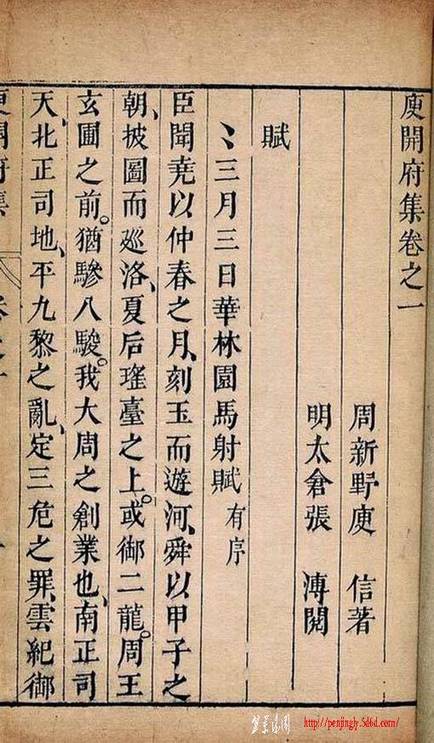 庾開府集卷之一
周新野庾　信著
明太倉張　溥閱
賦
三月三日華林園馬射賦有序
臣聞堯以仲春之月、刻玉而遊河、舜以甲子之
朝、披圖而廵洛、夏后瑤臺之上。或御二龍。周王
玄圃之前。猶驂八駿。我大周之創業也、南正司
天、北正司地、平九黎之亂、定三危之罪、雲紀御
庾開府集
卷之一
http://penjingly.5d6d.com/